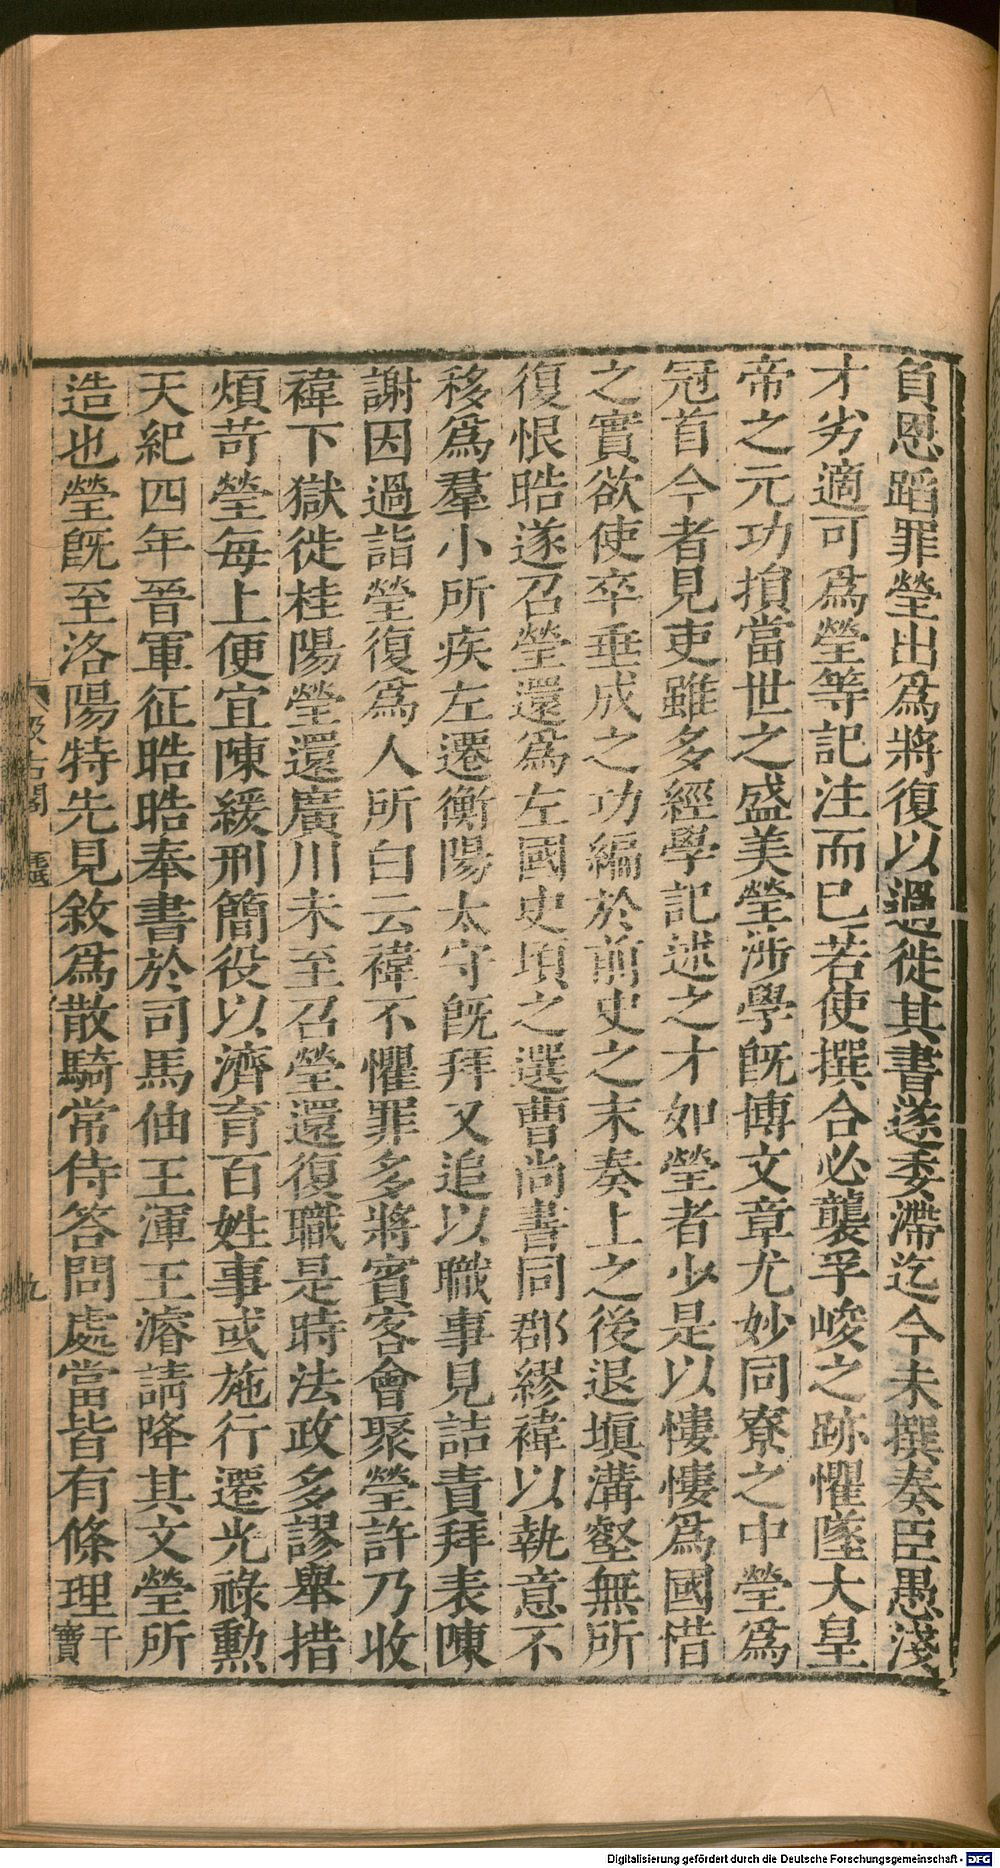 負恩蹈罪瑩出爲將復以過徙其書遂委滯迄今未撰奏臣愚淺
才劣適可爲瑩等記注而已若使撰合必襲孚峻之跡懼墜大皇
帝之元功損當世之盛美瑩涉學旣博文章尤妙同寮之中瑩爲
冠首今者見吏雖多經學記述之才如瑩者少是以慺慺爲國惜
之實欲使卒垂成之功編於前史之末奏上之後退塡溝壑無所
復恨晧遂召瑩還爲左國史頃之選曹尚書同郡繆禕以執意不
移爲羣小所疾左遷衡陽太守旣拜又追以職事見詰責拜表陳
謝因過詣瑩復爲人所白云禕不懼罪多將賓客會聚瑩許乃收
禕下獄徙桂陽瑩還廣川未至召瑩還復職是時法政多謬舉措
煩苛瑩每上便宜陳緩刑簡役以濟育百姓事或施行遷光祿勲
天紀四年晉軍征晧晧奉書於司馬伷王渾王濬請降其文瑩所
造也瑩旣至洛陽特先見敘爲散騎常侍答問處當皆有條理干
寶
汲古閣
毛氏
九
Digitalisierung gefördert durch die Deutsche Forschungsgemeinschaft - DFG